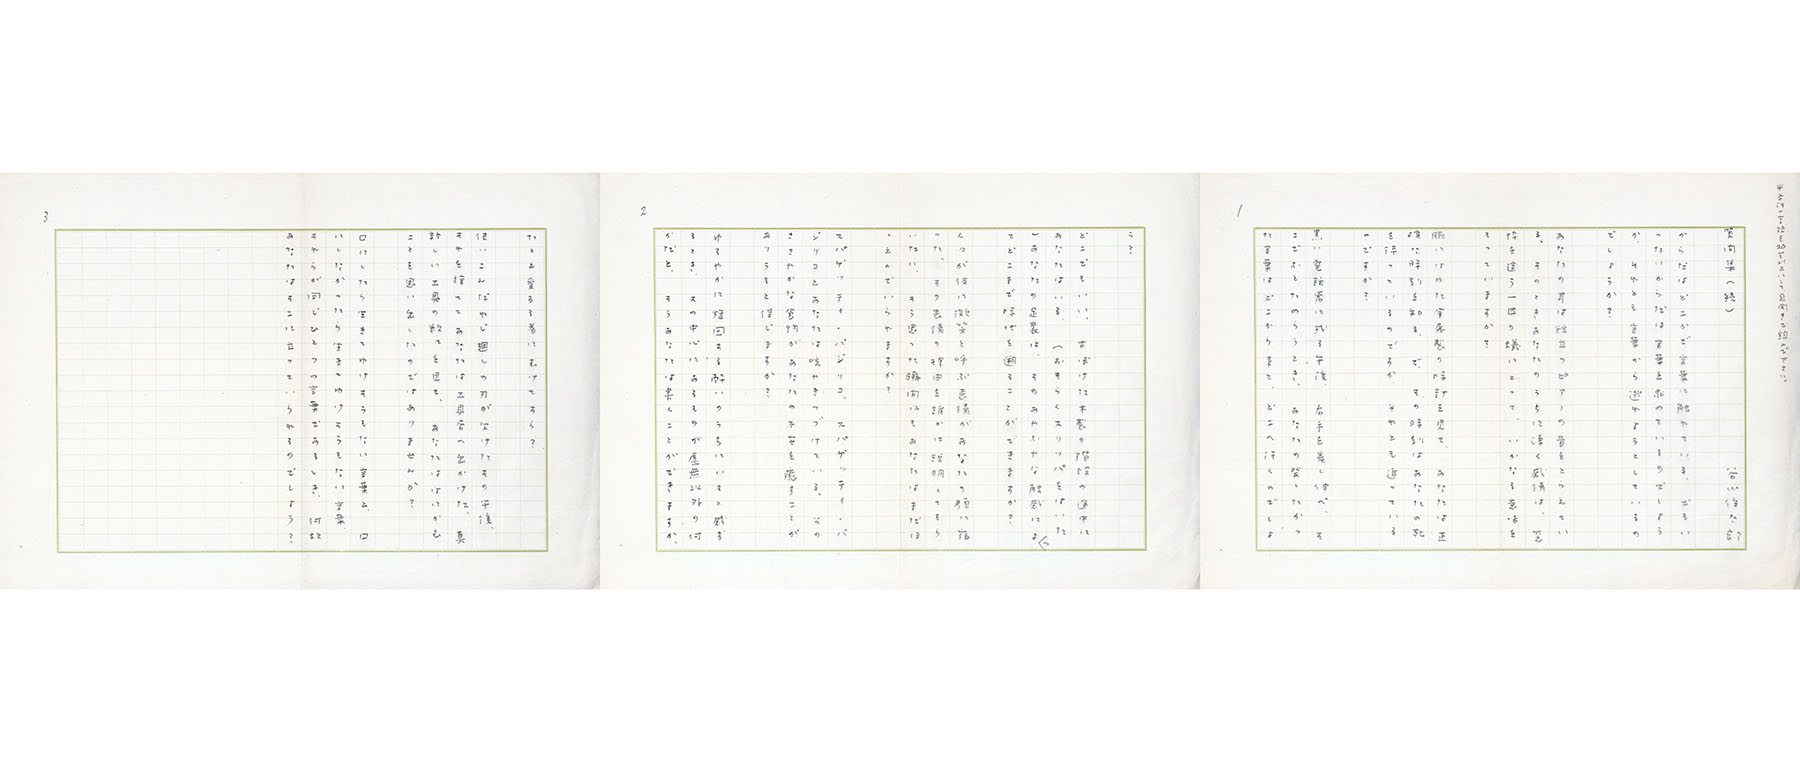 1
質問集（続）　谷川俊太郎
からだはどこかで言葉に触れている。どうい
ったいからだは言葉を求めているのでしょう
か、それとも言葉から逃れようとしているの
でしょうか？
あなたの耳は粒立つピアノの音をとらえてい
る。そのときあなたのうちに湧く感情は、窓
枠を這う一匹の蟻にとって、いかなる意味を
もっていますか？
腕にはめた貴金属製の時計を見て、あなたは正
確な時刻を知る。で、その時刻はあなたの死
を待っているのですか、それとも追っている
のですか？
黒い電話器に戻る午後、右手を差し伸べ、そ
こでふとためらうとき、あなたの発しなかっ
た言葉はどこから来て、どこへ行くのでしょ
2
う？
どこでもいい、古ぼけた木製の階段の途中に
あなたはいる。（おそらくスリッパをはいた
）あなたの足裏は、そのあやふやな触感によ
ってどこまで時代を遡ることができますか？
人々が仮に微笑と呼ぶ表情があなたの顔に宿
った。その表情の理由を誰かに説明してもら
いたい、そう思った瞬間にもあなたはまだほ
ほえんでいられますか？
スパゲッティ・バジリコ、スパゲッティ・バ
ジリコとあなたは呟やきつづけている。その
ささやかな食物があなたの不安を癒すことが
ありうると信じますか？
ゆるやかに旋回する酔いのうちにいると感ず
るとき、その中心にあるものが虚無以外の何
かだと、そうあなたは書くことができますか、
3
たとえ愛する者にむけてすら？
使いこんだねじ廻しの刃が欠けたその午後、
それを捨ててあなたは工具店へ出かけた。真
新しい工具の数々を見て、あなたはほかにかも
ことを思い出したのではありませんか？
口にしたら生きてゆけそうもない言葉と、口
にしなかったら生きてゆけそうもない言葉、
それらが同じひとつの言葉であるとき、何故
あなたはそこに立っていられるのでしょう？